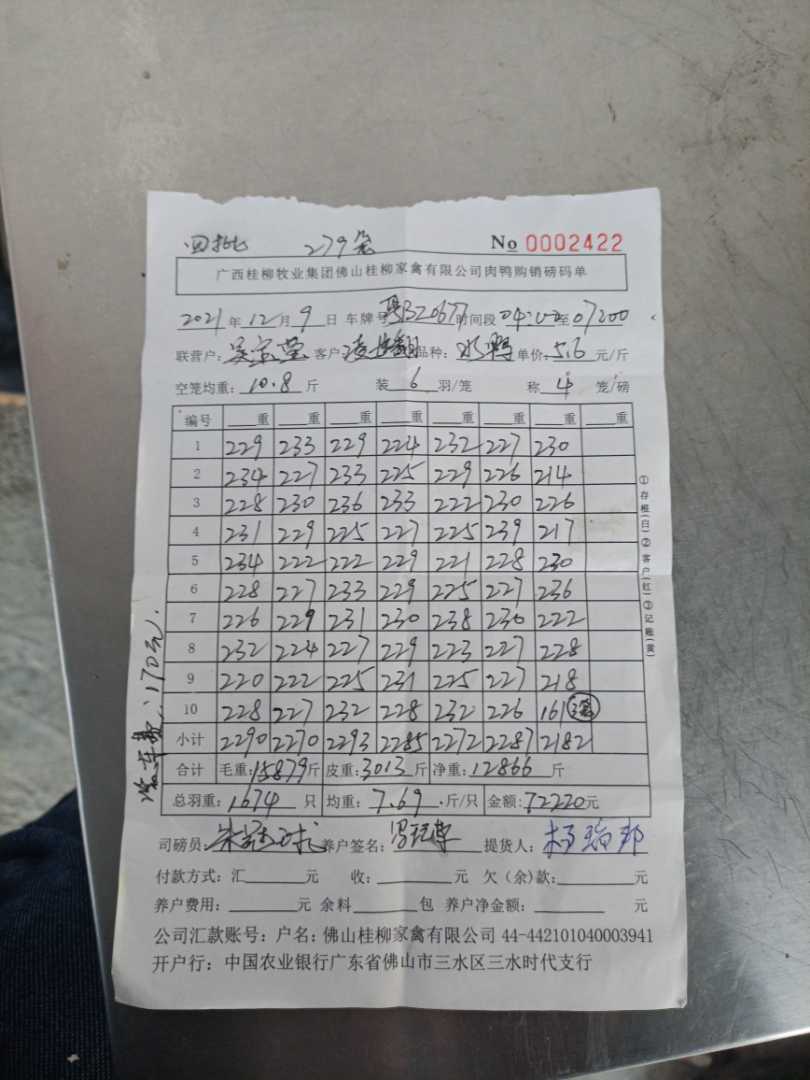 四批 279笼 No 0002422
广西桂柳牧业集团佛山桂柳家禽有限公司肉鸭购销磅码单
2021年12月9日 车牌号 时间段04:00至07:00
联营户: 客户: 品种:水鸭 单价:5.6元/斤
空笼均重:10.8斤 装6羽/笼 称4笼/磅
编号 重 重 重 重 重 重 重 重
1 229 233 229 224 232 227 230
2 234 227 233 225 229 226 214
3 228 230 236 233 222 230 226
4 231 229 225 227 225 239 217
5 234 222 222 229 221 228 230
6 228 227 233 229 225 227 236
7 226 229 231 230 238 230 222
8 232 224 227 229 223 227 228
9 220 222 225 231 225 227 218
10 228 227 232 228 232 226 161 3笼
小计 2290 2270 2293 2285 2272 2287 2182
合计 毛重:15879斤 皮重:3013斤 净重:12866斤
总羽重:1674只 均重:7.69斤/只 金额:72220元
司磅员: 养户签名: 提货人:
付款方式:汇 元 收: 元 欠(余)款: 元
养户费用: 元 余料 包 养户净金额: 元
公司汇款账号:户名:佛山桂柳家禽有限公司 44-442101040003941
开户行:中国农业银行广东省佛山市三水区三水时代支行
①存根(白)②客户(红)③记账(黄)
车费:170元